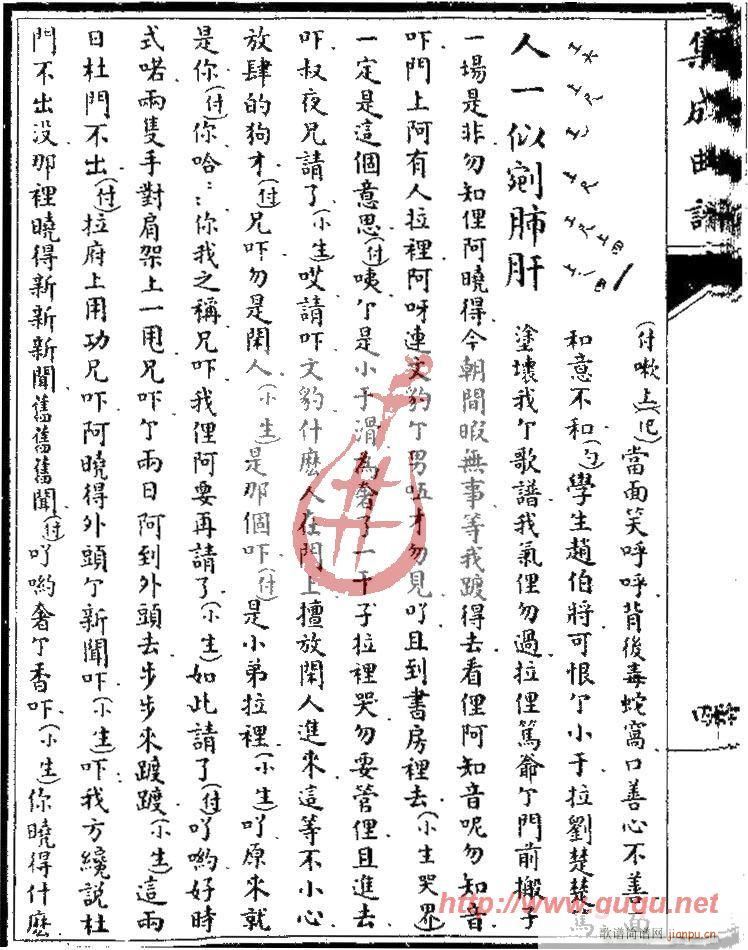 集成曲譜
人一似剜肺肝
(付嗽上)(念)當面笑呼呼背後毒蛇窩口善心不善
和意不和(白)學生趙伯將可恨个小于拉劉楚楚篤
塗壞我个歌譜我氣俚勿過拉俚篤爺个門前搬子
一場是非勿知俚阿曉得今朝閒暇無事等我踱得去看俚阿知音呢勿知音
吓門上阿有人拉裡阿呀連文豹个男呒才勿見吖且到書房裡去(小生哭界)
一定是這個意思(付)咦个是小于滑為奢了一干子拉裡哭勿要管俚且進去
吓叔夜兄請了(小生)哎請吓文豹什麼人在門上擅放閑人進來這等不小心
放肆的狗才(付)兄吓勿是閑人(小生)是那個吓(付)是小弟拉裡(小生)吖原來就
是你(付)你哈：：你我之稱兄吓我俚阿要再請了(小生)如此請了(付)吖喲好時
式喏兩隻手對肩架上一甩兄吓个兩日阿到外頭去步步來踱踱(小生)這兩
日杜門不出(付)拉府上用功兄吓阿曉得外頭个新聞吓(小生)吓我方纔説杜
門不出没那裡曉得新新新聞舊舊舊聞(付)吖喲奢个香吓(小生)你曉得什麽
http://www.gugu.net
歌谱简谱网
jianpu.cn